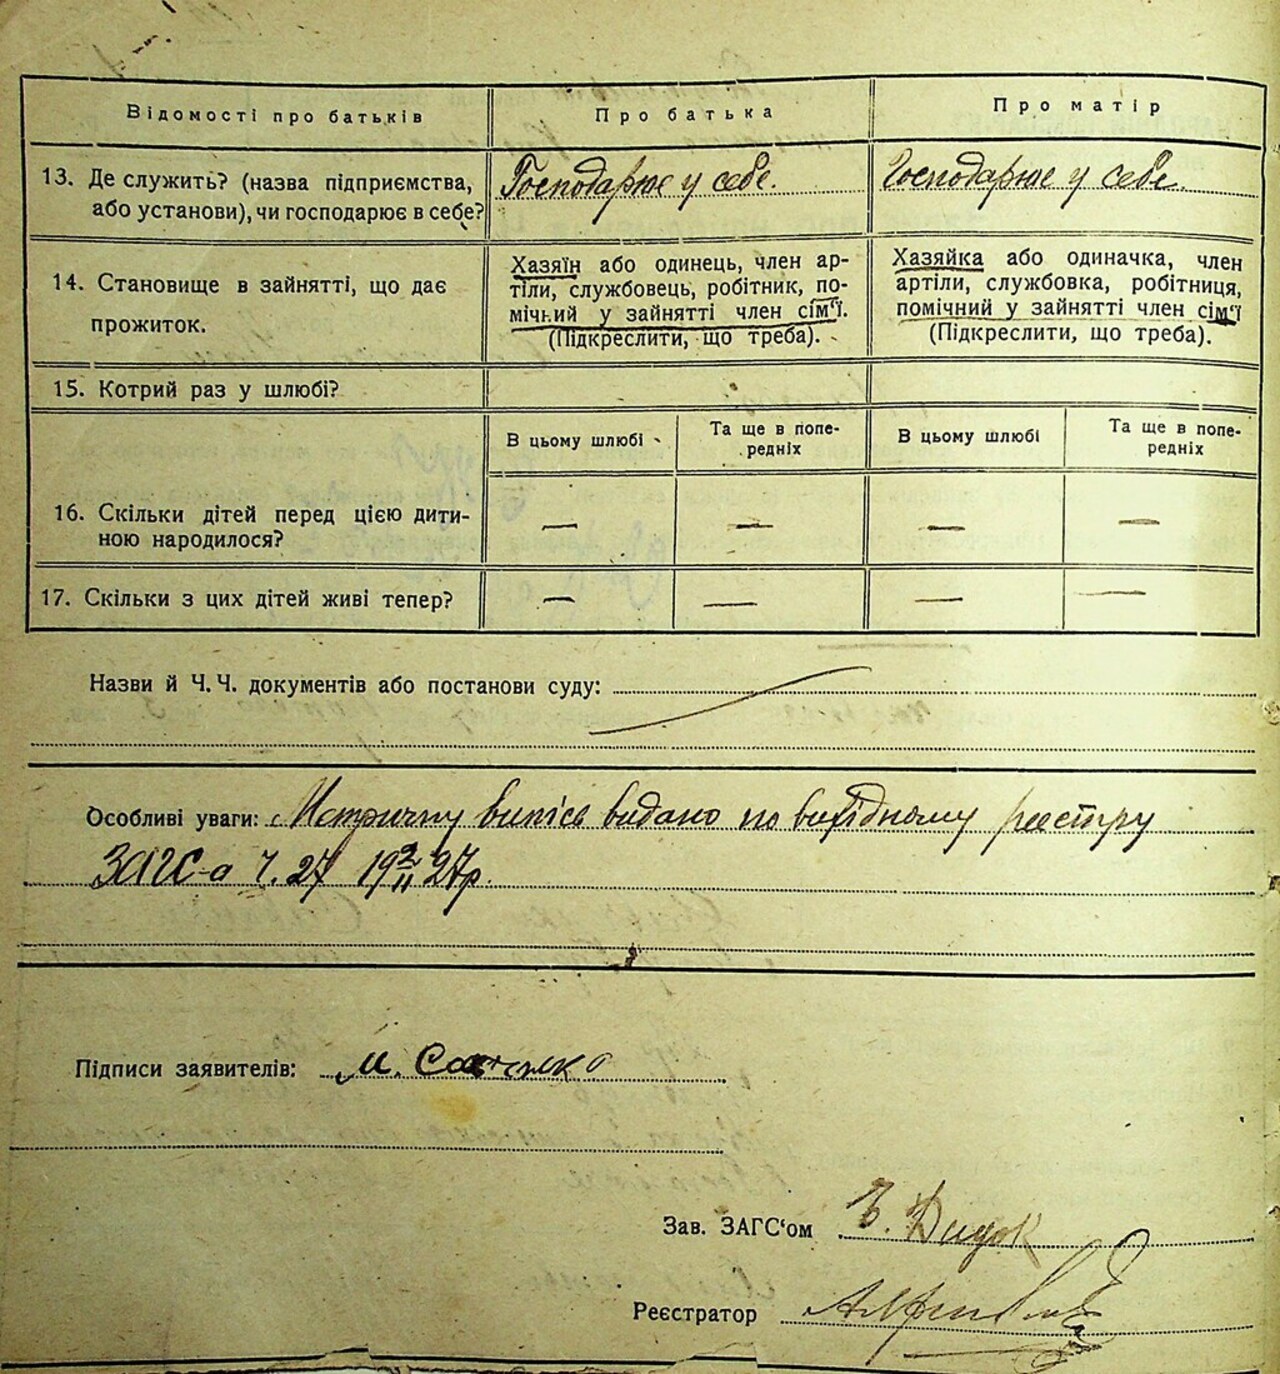 Відомості про батьків
Про батька
Про матір
13. Де служить? (назва підприємства,
або установи), чи господарює в себе?
Господарює у себе.
Господарює у себе.
14. Становище в зайнятті, що дає
прожиток.
Хазяїн або одинець, член ар-
тіли, службовець, робітник, по-
мічний у зайнятті член сім'ї.
(Підкреслити, що треба).
Хазяйка або одиначка, член
артіли, службовка, робітниця,
помічний у зайнятті член сім'ї
(Підкреслити, що треба).
15. Котрий раз у шлюбі?
В цьому шлюбі
Та ще в попе-
редніх
В цьому шлюбі
Та ще в попе-
редніх
16. Скільки дітей перед цією дити-
ною народилося?
— — — —
17. Скільки з цих дітей живі тепер?
— — — —
Назви й Ч. Ч. документів або постанови суду:
Особливі уваги: Метричну випись видано по вихідному реєстру
ЗАГС-а Ч. 27 19 2/II 27р.
Підписи заявителів: М.
Зав. ЗАГС'ом В. Дидок
Реєстратор